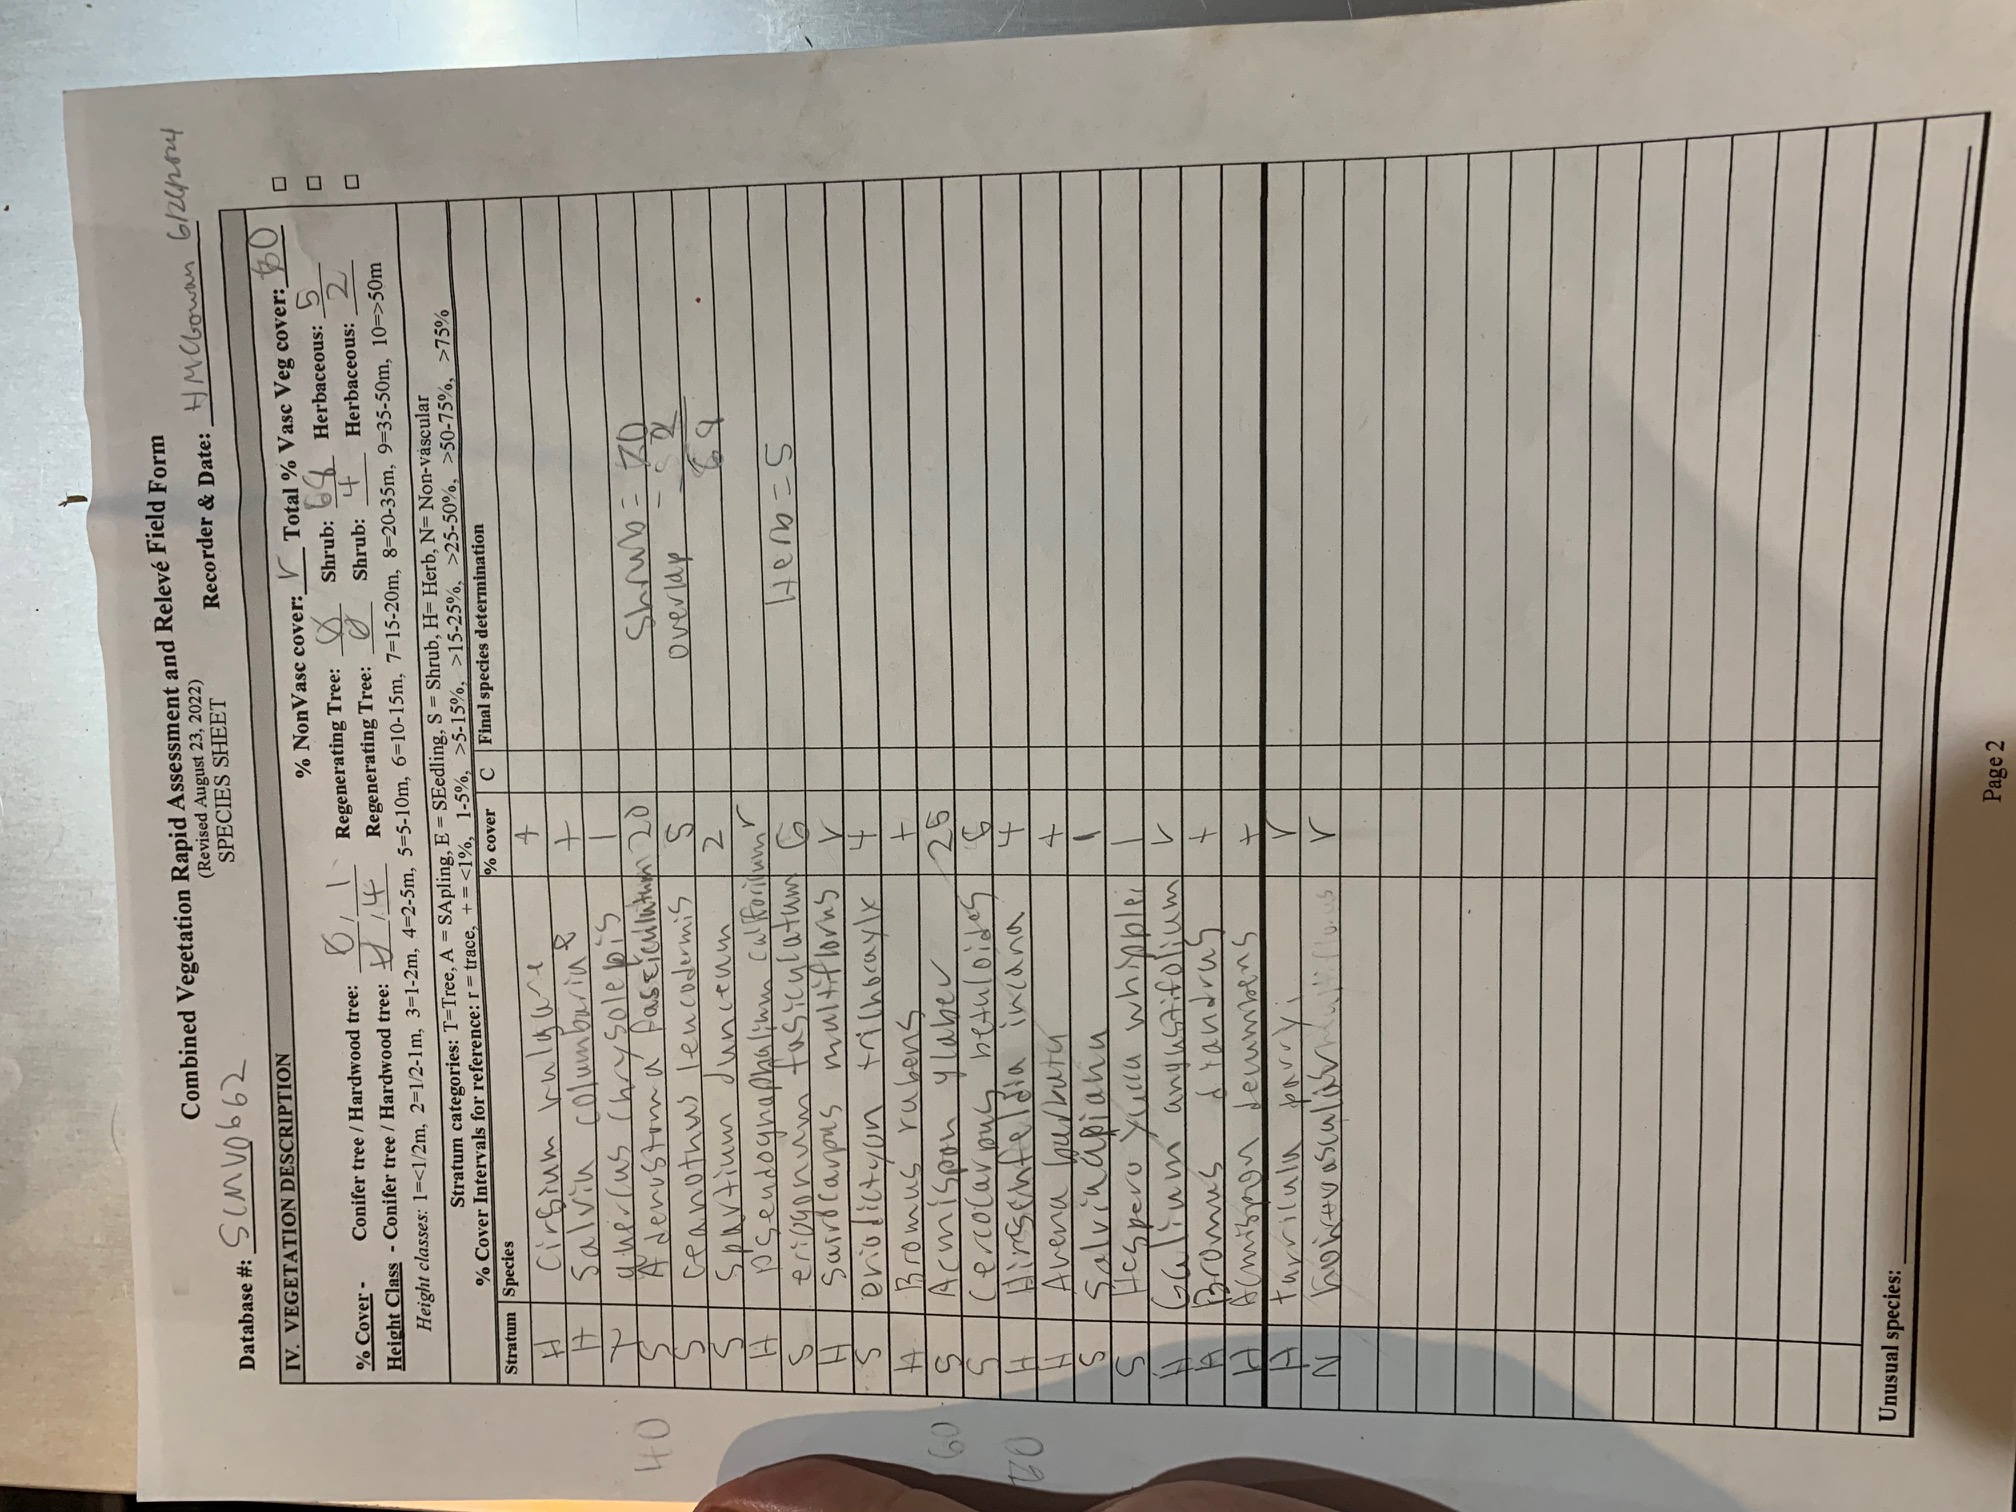 Combined Vegetation Rapid Assessment and Relevé Field Form
(Revised August 23, 2022)
SPECIES SHEET
Database #: SCMV0662 Recorder & Date: HMcGowan 6/24/2024
IV. VEGETATION DESCRIPTION
% NonVasc cover: r Total % Vasc Veg cover: 80
% Cover - Conifer tree / Hardwood tree: 0 / 1 Regenerating Tree: 0 Shrub: 68 Herbaceous: 5
Height Class - Conifer tree / Hardwood tree: 0 / 4 Regenerating Tree: 0 Shrub: 4 Herbaceous: 2
Height classes: 1=<1/2m, 2=1/2-1m, 3=1-2m, 4=2-5m, 5=5-10m, 6=10-15m, 7=15-20m, 8=20-35m, 9=35-50m, 10=>50m
Stratum categories: T=Tree, A = SApling, E = SEedling, S = Shrub, H= Herb, N= Non-vascular
% Cover Intervals for reference: r = trace, + = <1%, 1-5%, >5-15%, >15-25%, >25-50%, >50-75%, >75%
Stratum Species % cover C Final species determination
H Cirsium vulgare +
H Salvia columbaria +
T quercus chrysolepis 1
40 S Adenostoma fasciculatum 20 Shrub = 70
S ceanothus leucodermis 5 overlap - 2
S Spartium junceum 2 69
H pseudognaphalium califorilum r
S eriogonum fasiculatum 6 Herb = 5
H Sarocarpus multiflorus r
S eriodictyon trichocaylx 4
H Bromus rubens +
60 S Acmispon glaber 25
S Cercocarpus betuloides 6
80 H Hirschfeldia incana 4
H Avena barbata +
S Salvia apiana 1
S Hesperoyucca whipplei 1
H Galium angustifolium r
H Bromus diandrus +
H Acmispon decumbens +
H turricula parryi r
N nonvascular r
Unusual species:
Page 2